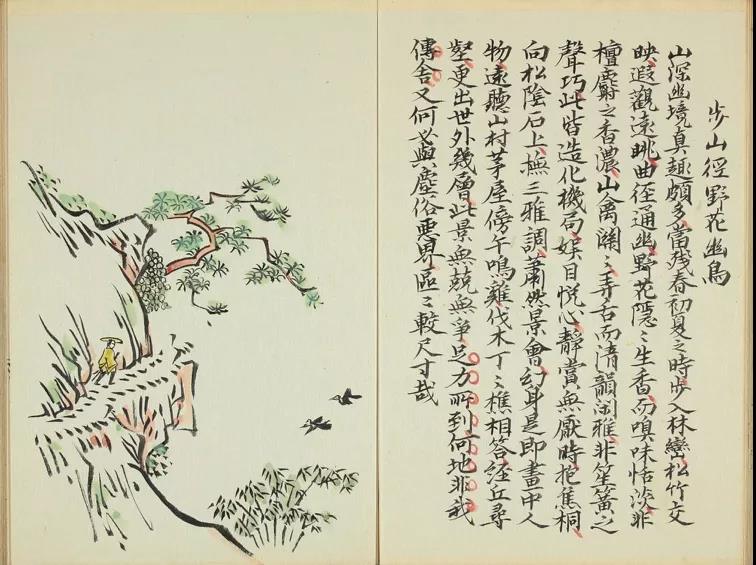 步山徑野花幽鳥
山深幽境真趣頗多當残春初夏之時步入林巒松竹交
映遐觀遠眺曲径通幽野花隱〻生香而嗅味恬淡非
檀麝之香濃山禽關〻弄舌而清韻閑雅非笙簧之
聲巧此皆造化機局娱目悅心靜賞無厭時抱焦桐
向松陰石上撫三雅調蕭然景會幻身是即畫中人
物遠聽山村茅屋傍午鳴雞伐木丁〻樵相答經丘尋
壑更出世外幾層此景無兢無爭足力所到何地非我
傳舍又何必與塵俗悪界區〻較尺寸哉